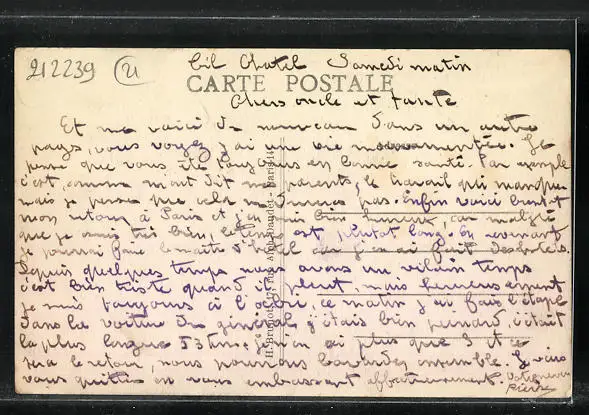 212239 21
Samedi matin
CARTE POSTALE
Chers oncle et tante
Et me voici de nouveau dans un autre
pays, vous voyez j'ai une vie mouvementée. Je
pense que vous ête toujours en bonne santé. Par exemple
c'est, comme m'ont dit mes parents, le travail qui manque
mais je pense que cela ne durera pas. Enfin voici bientot
mon retour à Paris et j'en suis bien content, car malgré
que je suis très bien, le temps est plutot long. En revenant
je pourrai faire le maitre d'hotel car j'en ai fait des hotels.
Depuis quelques temps nous avons un vilain temps
c'est bien triste quand il pleut, mais heureusement
je suis toujours à l'abri, ce matin j'ai fais l'étape
dans la voiture du général j'étais bien peinard, c'était
la plus longue 53 km, j'en ai plus que 3 et ce
sera le retour, nous pourrons bavarder ensemble. Je vais
vous quitter en vous embrassant affectueusement. Votre neveu
Pierre